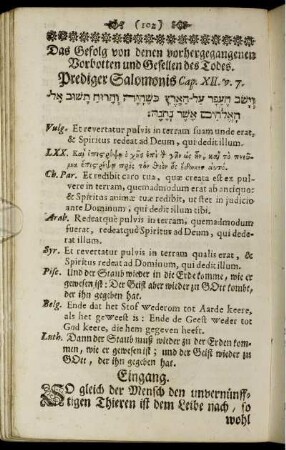 (102)
Das Gefolg von denen vorhergegangenen
Vorbotten und Gesellen des Todes.
Prediger Salomonis Cap. XII. v. 7.
וישב העפר על־הארץ כשהיה והרוח תשוב אל־
האלהים אשר נתנה׃
Vulg. Et revertatur pulvis in terram suam unde erat,
& Spiritus redeat ad Deum, qui dedit illum.
LXX. Καὶ ἐπιστρέψῃ ὁ χοῦς ἐπὶ τὴν γῆν ὡς ἦν, καὶ τὸ πνεῦ-
μα ἐπιστρέψῃ πρὸς τὸν θεὸν ὃς ἔδωκεν αὐτό.
Ch. Par. Et redibit caro tua, quæ creata est ex pul-
vere in terram, quemadmodum erat ab antiquo:
& Spiritus animæ tuæ redibit, ut stet in judicio
ante Dominum, qui dedit illum tibi.
Arab. Redeatque pulvis in terram, quemadmodum
fuerat, redeatque Spiritus ad Deum, qui dede-
rat illum.
Syr. Et revertatur pulvis in terram qualis erat, &
Spiritus redeat ad Dominum, qui dedit illum.
Pisc. Und der Staub wieder in die Erde komme, wie er
gewesen ist: Der Geist aber wieder zu GOtt kombt,
der ihn gegeben hat.
Belg. Ende dat het Stof wederom tot Aarde keere,
als het geweest is: Ende de Geest weder tot
God keere, die hem gegeven heeft.
Luth. Dann der Staub muß wieder zu der Erden kom-
men, wie er gewesen ist; und der Geist wieder zu
GOtt, der ihn gegeben hat.
Eingang.
SO gleich der Mensch den unvernünff-
tigen Thieren ist dem Leibe nach, so
wohl